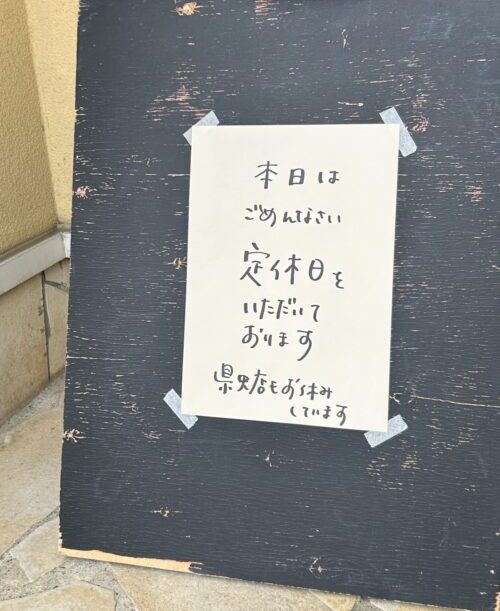 本日は
ごめんなさい
定休日を
いただいて
おります
県央店もお休み
しています